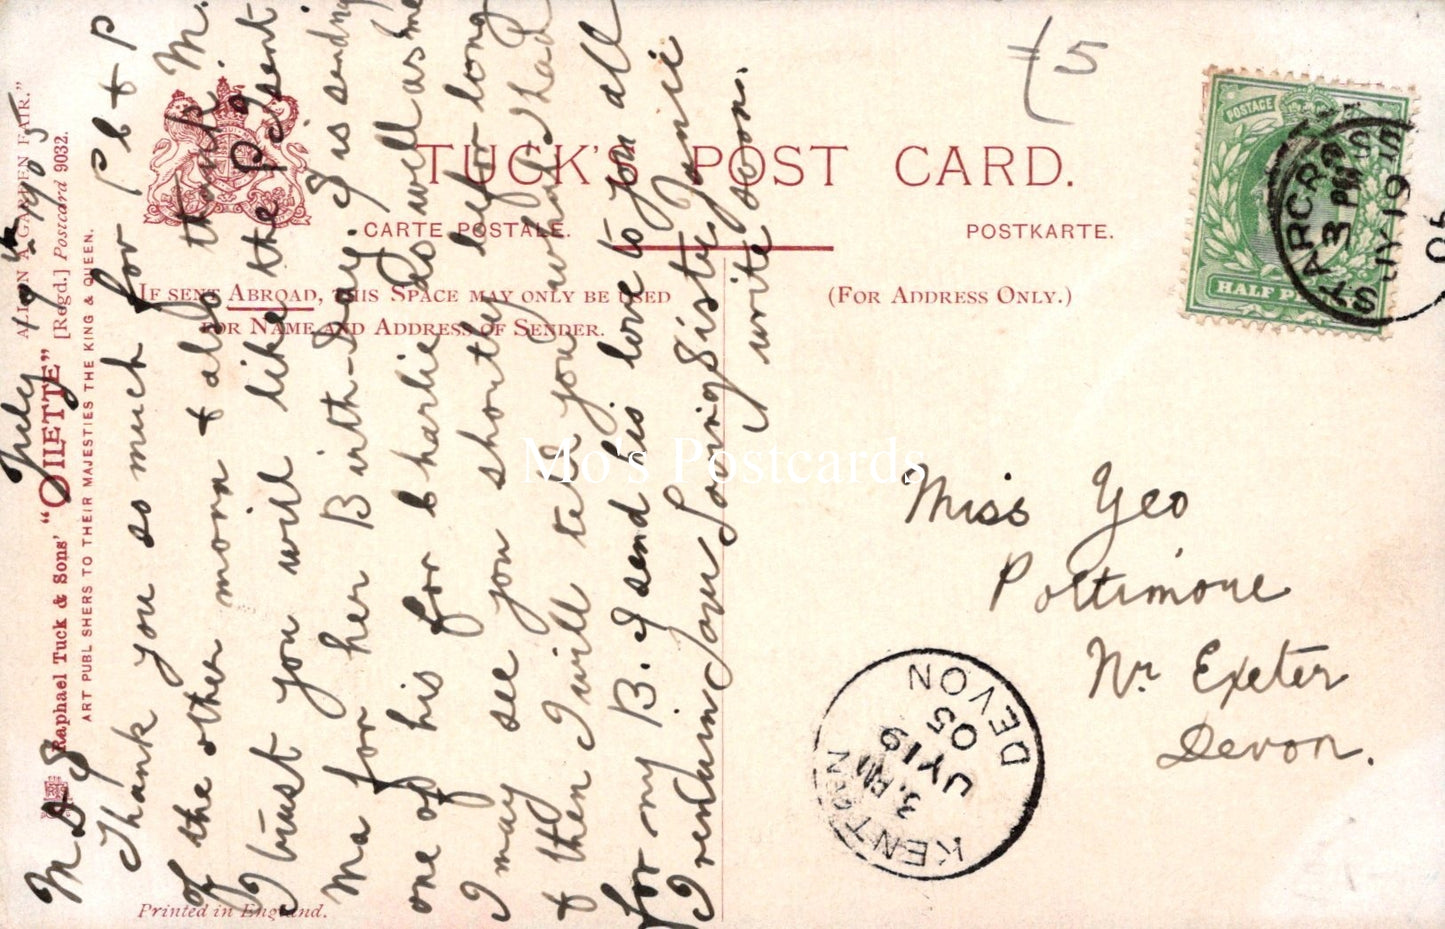 TUCK'S POST CARD.
CARTE POSTALE.
POSTKARTE.
IF SENT ABROAD, THIS SPACE MAY ONLY BE USED
FOR NAME AND ADDRESS OF SENDER.
(FOR ADDRESS ONLY.)
£5
POSTAGE
HALF PENNY
3 PM
JY 19
05
Miss Yeo
Poltimore
Nr Exeter
Devon.
KENTON
DEVON
3. PM
JY 19
05
Mo's Postcards
ALION A GARDEN FAIR."
Raphael Tuck & Sons' "OILETTE" [Regd.] Postcard 9032.
ART PUBLISHERS TO THEIR MAJESTIES THE KING & QUEEN.
Printed in England.
M D S July 19th 1905
Thank you so much for P C + P
of the other morn + also thank M.
I trust you will like the P C I sent
Ma for her Birth-Day. I is sending
one of his for Charlie So well as me
I may see you shortly befor long
+ then I will tell you what I had
for my B. I send his love to you all
I remain your Loving Sister Janie
write soon.